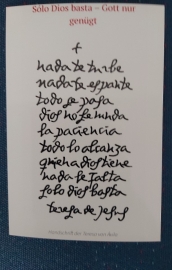 Sólo Dios basta – Gott nur
genügt
nada te turbe
nada te espante
todo se pasa
dios no se muda
la paciencia
todo lo alcanza
quien a dios tiene
nada le falta
solo dios basta
teresa de Jesus